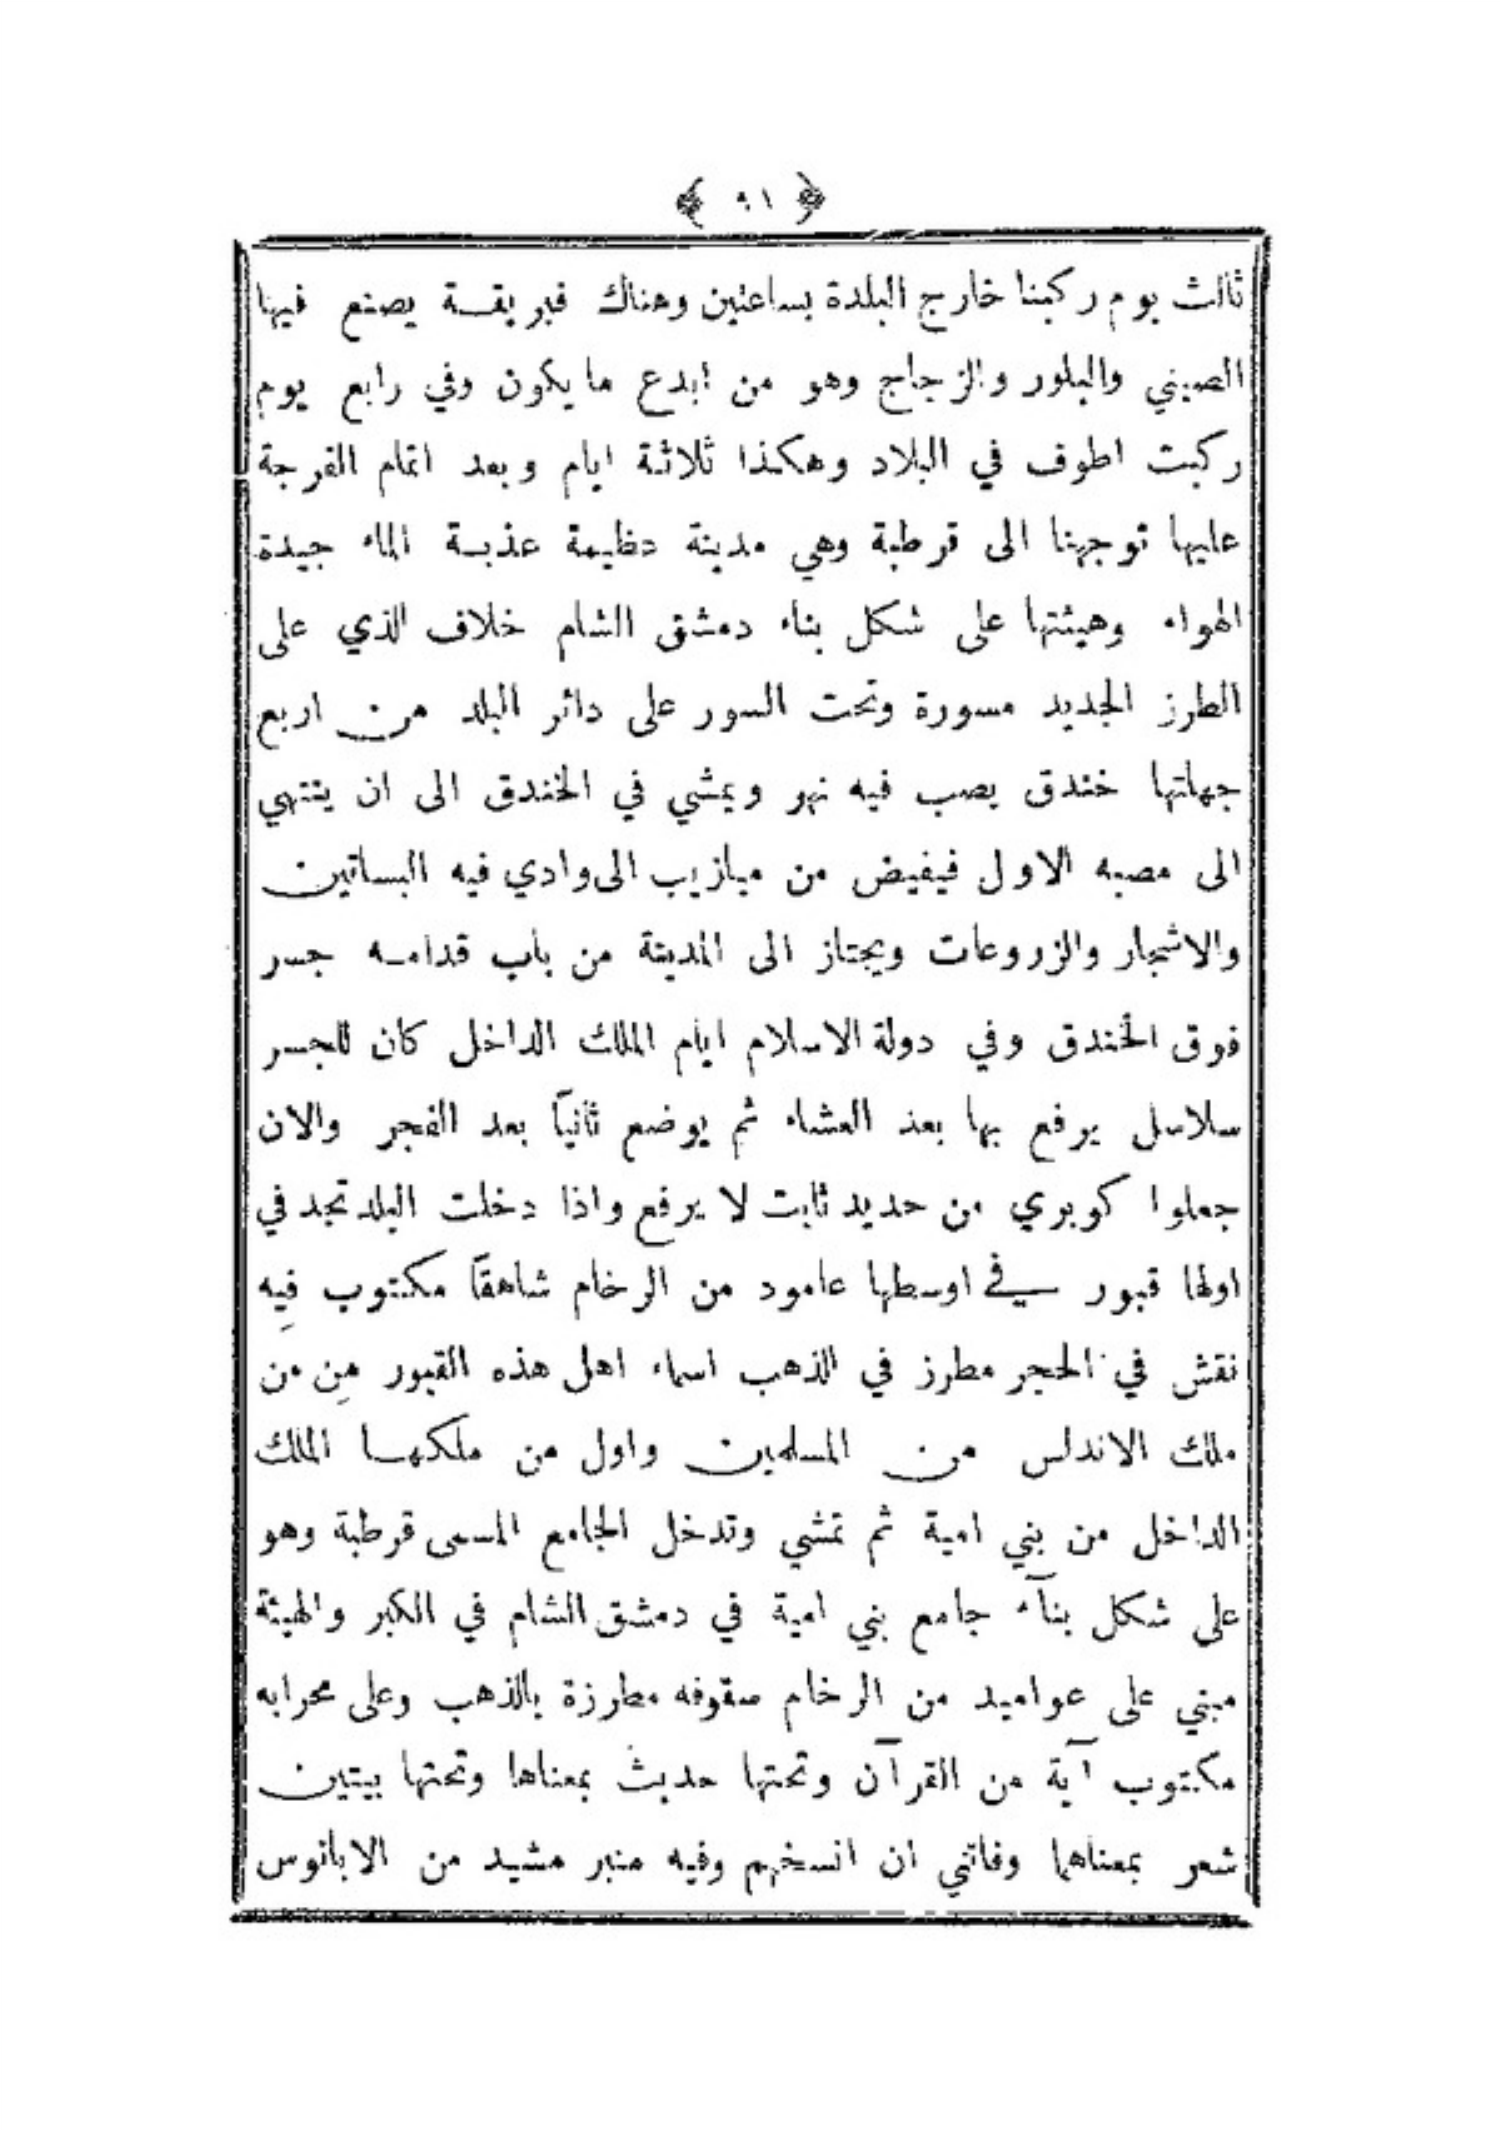 ﴿ ٩١ ﴾
ثالث يوم ركبنا خارج البلدة بساعتين وهناك فبريقة يصنع فيها
الصيني والبلور والزجاج وهو من ابدع ما يكون وفي رابع يوم
ركبت اطوف في البلاد وهكذا ثلاثة ايام وبعد اتمام الفرجة
عليها توجهنا الى قرطبة وهي مدينة عظيمة عذبة الماء جيدة
الهواء وهيئتها على شكل بناء دمشق الشام خلاف الذي على
الطرز الجديد مسورة وتحت السور على دائر البلد من اربع
جهاتها خندق يصب فيه نهر ويمشي في الخندق الى ان ينتهي
الى مصبه الاول فيفيض من ميازيب الى وادي فيه البساتين
والاشجار والزروعات ويجتاز الى المدينة من باب قدامه جسر
فوق الخندق وفي دولة الاسلام ايام الملك الداخل كان للجسر
سلاسل يرفع بها بعد العشاء ثم يوضع ثانياً بعد الفجر والان
جعلوا كوبري من حديد ثابت لا يرفع واذا دخلت البلد تجد في
اولها قبور في اوسطها عامود من الرخام شاهقاً مكتوب فِيه
نقش في الحجر مطرز في الذهب اسماء اهل هذه القبور مِن من
ملك الاندلس من المسلمين واول من ملكها الملك
الداخل من بني امية ثم تمشي وتدخل الجامع المسمى قرطبة وهو
على شكل بنآء جامع بني امية في دمشق الشام في الكبر والهيئة
مبني على عواميد من الرخام سقوفه مطرزة بالذهب وعلى محرابه
مكتوب آية من القرآن وتحتها حديث بمعناها وتحتها بيتين
شعر بمعناهما وفاتني ان انسخهم وفيه منبر مشيد من الابانوس